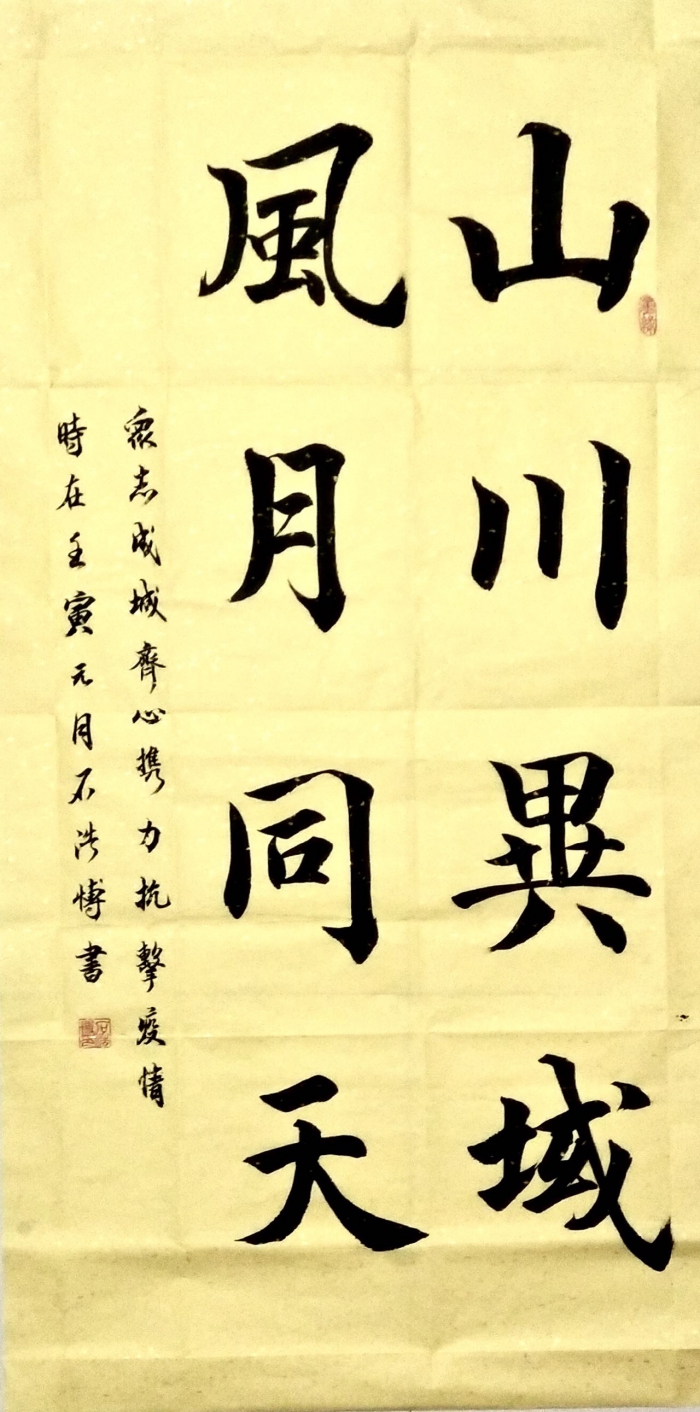 山川異域
風月同天
眾志成城齊心携力抗擊疫情
時在壬寅元月石浩博書